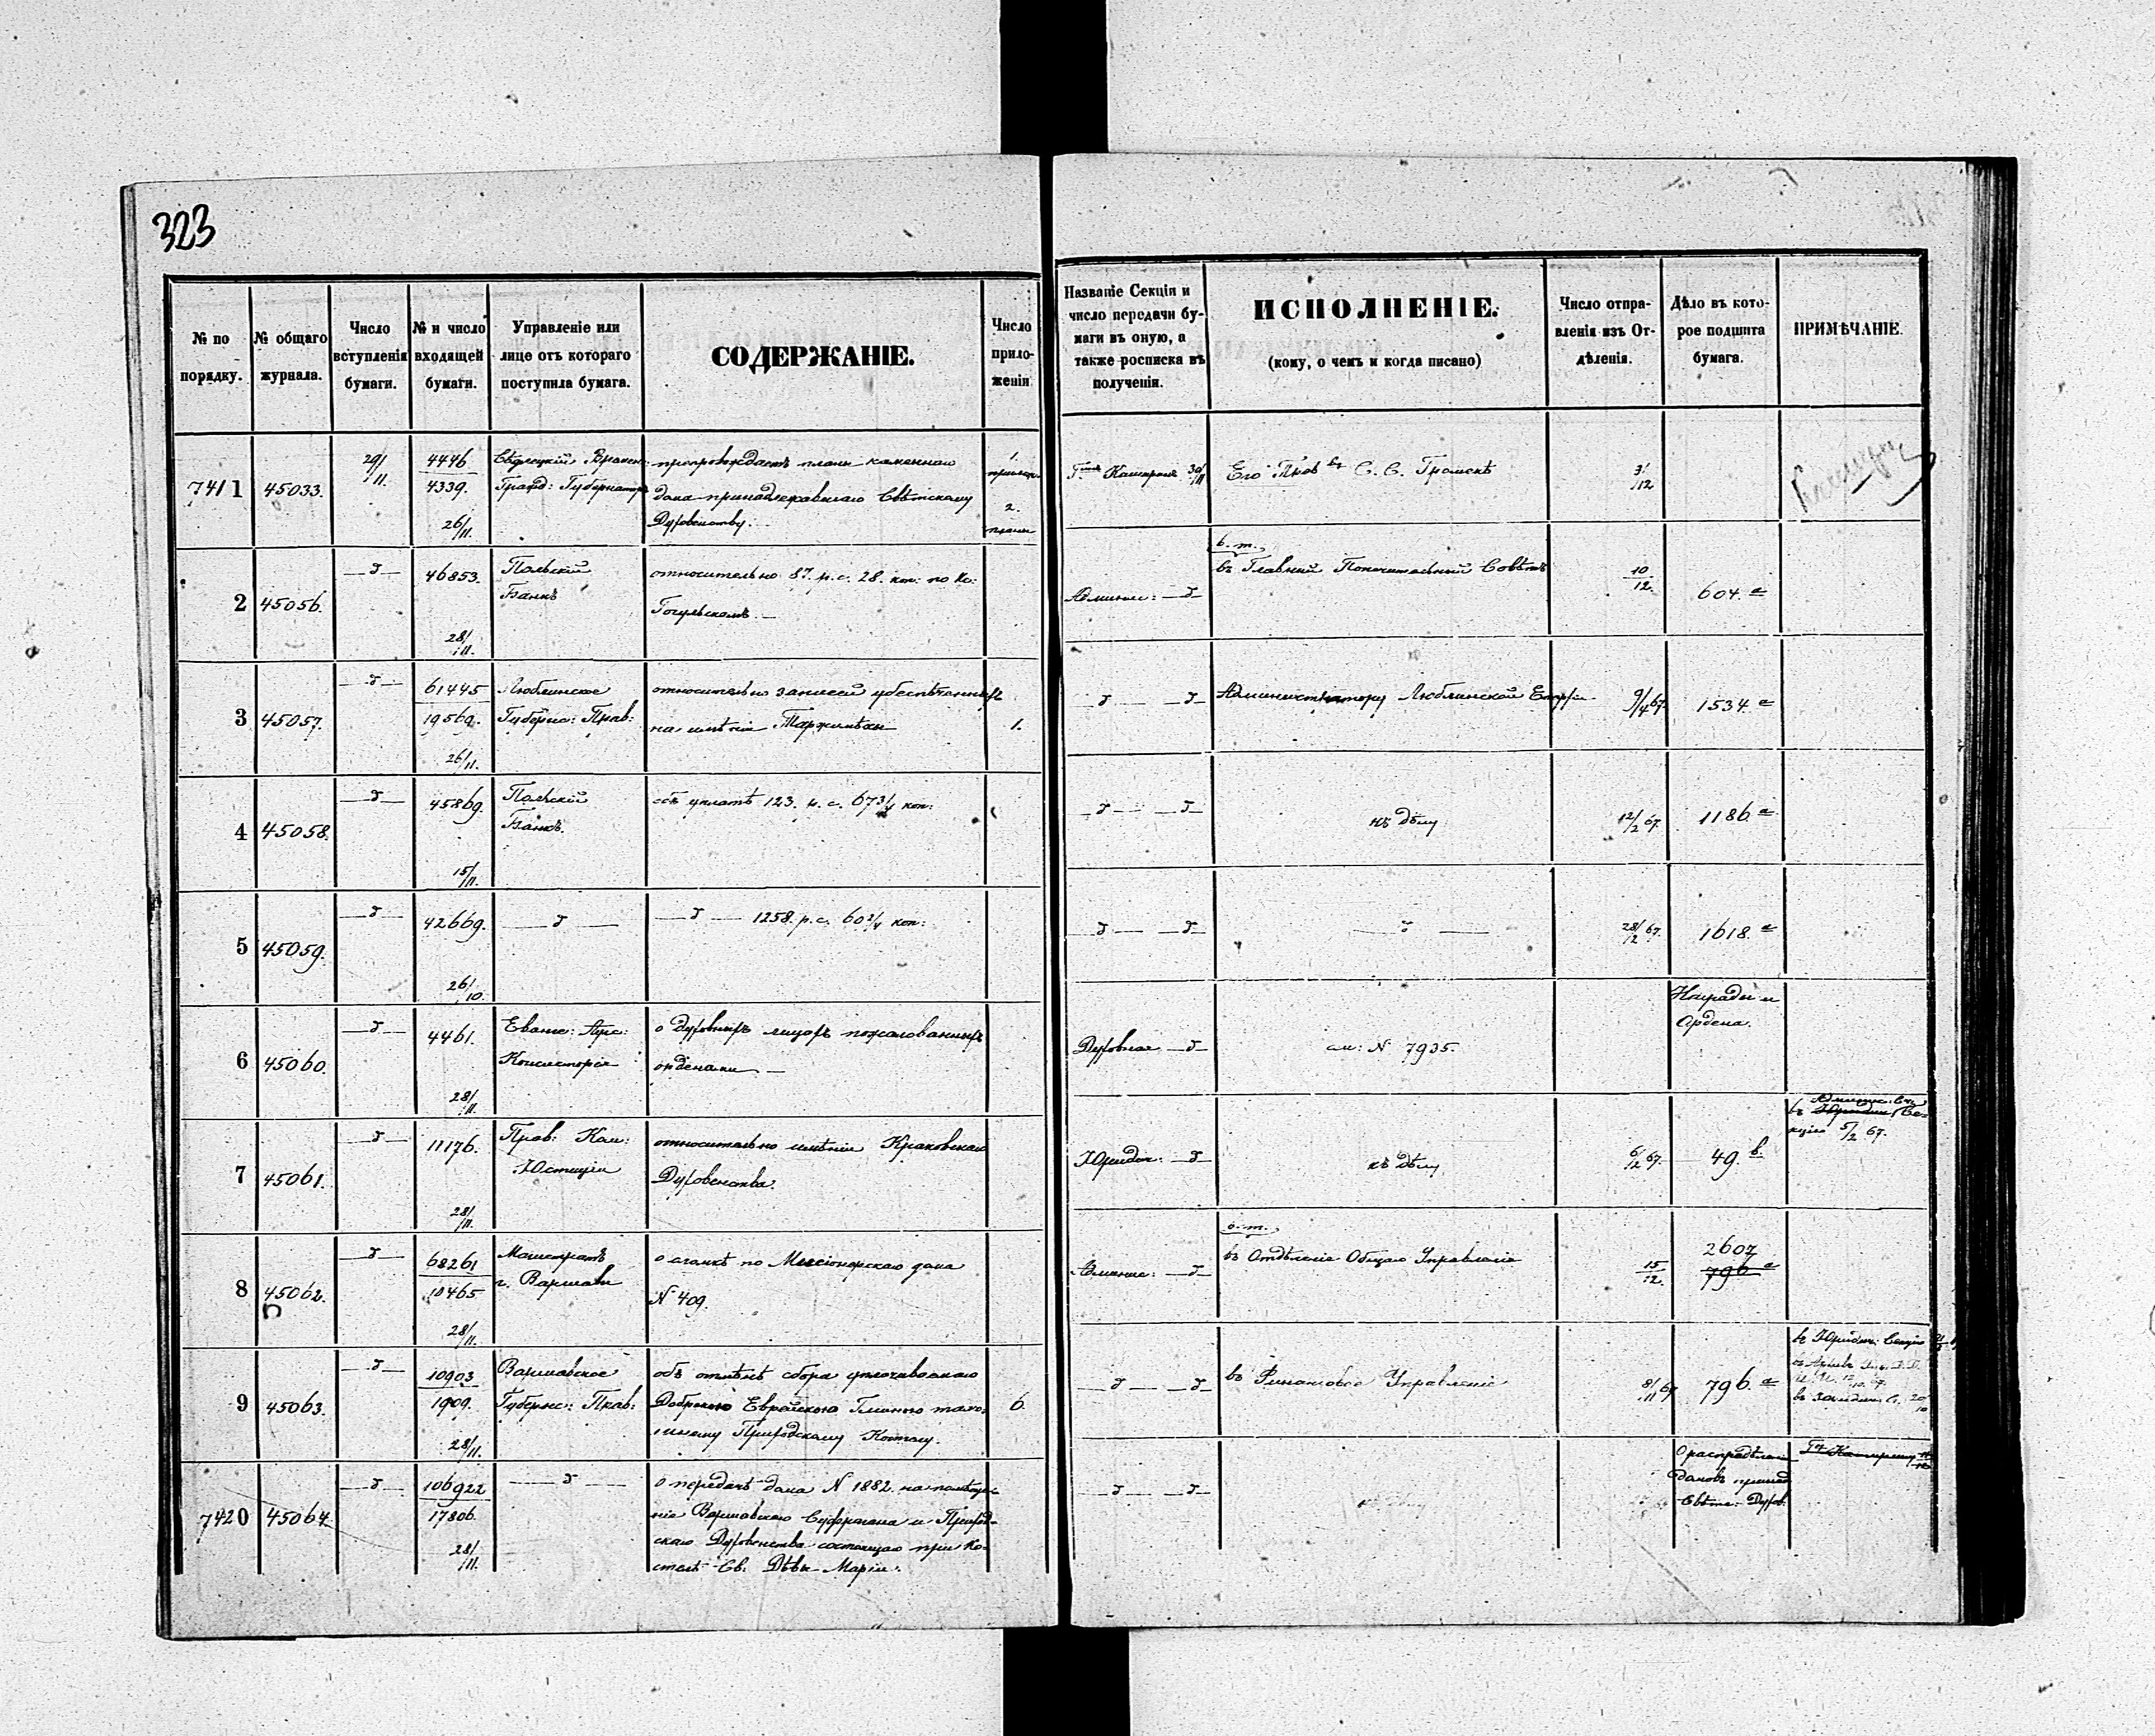 323
№ по порядку.
№ общаго журнала.
Число вступленія бумаги.
№ и число входящей бумаги.
Управленіе или лице отъ котораго поступила бумага.
СОДЕРЖАНІЕ.
Число приложеній
Названіе Секціи и число передачи бумаги въ оную, а также росписка въ полученіи.
ИСПОЛНЕНІЕ.
(кому, о чемъ и когда писано)
Число отправленія изъ Отдѣленія.
Дѣло въ которое подшита бумага.
ПРИМѢЧАНІЕ.
7411 45033. 29/11. 4446 4339. 26/11.
Гражд: Губернаторъ
препровождаетъ планъ каменнаго
дома принадлежавшаго Свѣтскому
Духовенству.
1 прилож. 2. плана
30/11 Его С. С. Громекѣ 3/12
2 45056. 46853. 28/11.
Польскій
Банкъ
относительно 87. р. с. 28. коп: по Ко:
Админис:
въ Главный Попечительный Совѣтъ
10/12. 604. а
3 45057. 61445 19569. 26/11.
Люблинское
Губерн: Прав:
относительно записей убеспѣченныхъ
на имѣніи
1.
Администратору Люблинской Епархіи
9/4 67. 1534. а
4 45058. 45869. 15/11.
Польскій
Банкъ.
объ уплатѣ 123. р. с. 67 3/4 коп:
къ дѣлу 12/2 67. 1186. а
5 45059. 42669. 26/10.
1258. р. с. 60 2/4 коп:
28/12 67. 1618. а
6 45060. 4461. 28/11.
Консисторія
о духовныхъ лицахъ пожалованныхъ
орденами
Духовная
см: N 7935.
Награды и
Ордена.
7 45061. 11176. 28/11.
Прав: Ком:
Юстиціи
относительно имѣнія Краковскаго
Духовенства.
Юридич:
къ дѣлу 6/12 67. 49. в.
5/2 67.
8 45062. 68261 10465 28/11.
Магистратъ
г. Варшавы
по Миссіонерскаго дома
N 409.
Админис:
въ Отдѣленіе Общаго Управленія
15/12. 2607 796 а
9 45063. 10903 1909. 28/11.
Варшавское
Губернс: Прав:
объ отмѣнѣ сбора уплочиваемаго
Еврейскою Гминою
Приходскому Костелу.
6.
въ Финансовое Управленіе
8/11 67 796. а
въ Юридич. Секцію
7420 45064. 106922 17806. 28/11.
о передачѣ дома N 1882. на помѣще-
ніе Варшавскаго Суффрагана и Приход-
скаго Духовенства состоящаго при Ко-
стелѣ Св: Дѣвы Маріи.
О распредѣленіи
домовъ принад
Свѣтс. Духов.